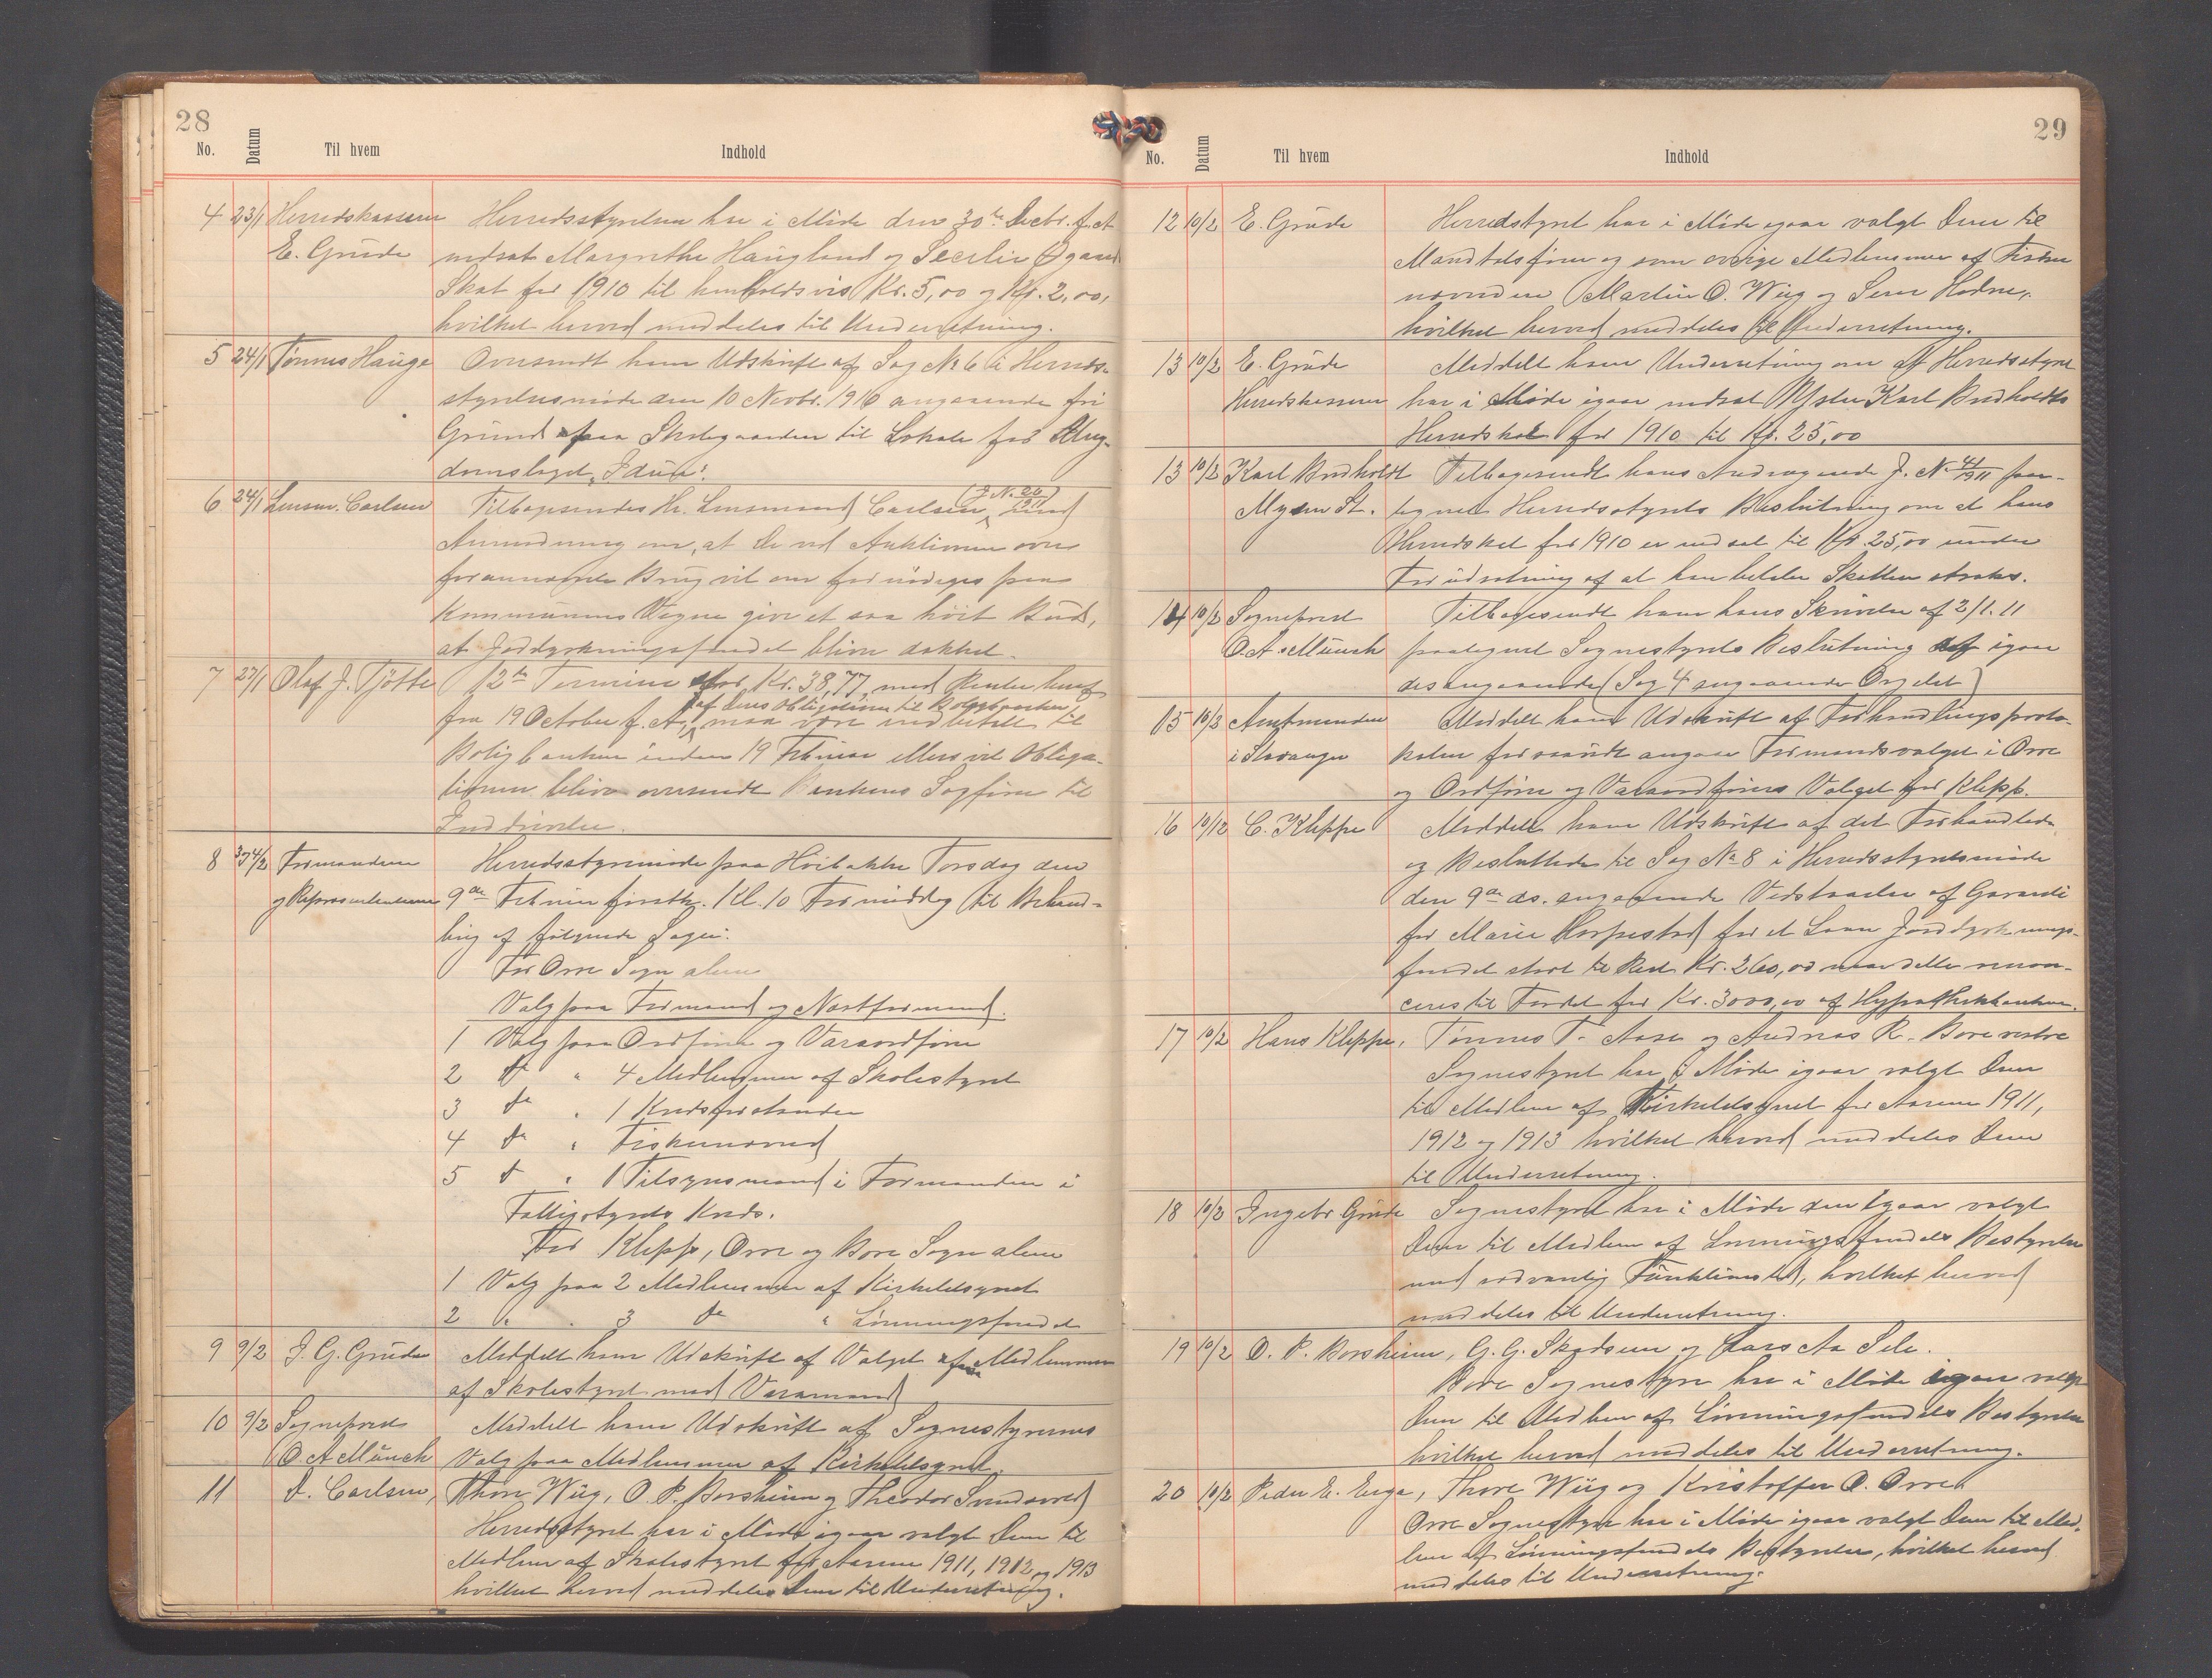 28
No. Datum Til hvem Indhold
4 23/1 Herredskasserer Herredsstyrelsen har i Møde den 30te Decbr. f. A.
E. Grude nedsat Margrethe Haugland og Secelie Øgaard
Skat for 1910 til henholdsvis Kr. 5,00 og Kr. 2,00,
hvilket herved meddeles til Underretning.
5 24/1 Tønnes Hauge Oversendt ham Udskrift af Sag No 6 i Herreds-
styrelsesmøde den 10 Novbr. 1910 angaaende fri
Grund paa Skolegaarden til Lokale for Ung-
domslaget "Idun".
6 24/1 Lensm. Carlsen Tilbagesendes Hr. Lensmand Carlsen (J. No 26/1911) med
Anmodning om, at De ved Auktionen over
forannævnte Brug vil om fornødiges paa
Kommunens Vegne give et saa høit Bud,
at Jorddyrkningsfondet bliver dækket.
7 27/1 Olaf J. Tjøtte 12te Termin stor Kr. 38,77 med Renter heraf
af Deres Obligation til Boligbanken
fra 19 October f. A., maa være indbetalt til
Boligbanken inden 19 Februar ellers vil Obliga-
tionen blive oversendt Bankens Sagfører til
Inddrivelse.
8 4/2 Formændene Herredsstyremøde paa Hvibakke Torsdag den
og Repræsentanterne 9de Februar førstk. Kl. 10 Formiddag til Behand-
ling af følgende Sager:
For Orre Sogn alene
Valg paa Formand og Næstformand.
1 Valg paa Ordfører og Varaordfører
2 do " 4 Medlemmer af Skolestyret
3 do " 1 Kredsforstander
4 do " Fiskernævnd
5 do " 1 Tilsynsmand i Formanden i
Fattigstyrets Kreds.
For Klepp, Orre og Bore Sogn alene
1 Valg paa 2 Medlemmer af Kirketilsynet
2 " " 3 do " Lønningsfondet
9 9/2 J. G. Grude Meddelt ham Udskrift af Valget af Medlemmer
af Skolestyret med Varamænd
10 9/2 Sogneprest Meddelt ham Udskrift af Sognestyrernes
O. A. Münch Valg paa Medlemmer af Kirketilsynet.
11 D. Carlsen, Thore Wiig, O. P. Borsheim og Theodor Sværdsvred
Herredsstyret har i Møde igaar valgt Dem til
Medlem af Skolestyret for Aarene 1911, 1912 og 1913
hvilket herved meddeles Dem til Underretning.
29
No. Datum Til hvem Indhold
12 10/2 E. Grude Herredsstyret har i Møde igaar valgt Dem til
Mandtalsfører og som øvrige Medlemmer af Fisker
nævnden Martin O. Wiig og Sem Hodne,
hvilket herved meddeles til Underretning.
13 10/2 E. Grude Meddelt ham Underretning om at Herredsstyret
Herredskasserer har i Møde igaar nedsat Ysten Karl Bredholdts
Herredskat for 1910 til Kr. 25,00
13 10/2 Karl Bredholdt Tilbagesendt hans Andragende J. No 41/1911 paa-
Mysen St. tegnet Herredsstyrets Beslutning om at hans
Herredskat for 1910 er nedsat til Kr. 25,00 under
Forudsætning af at han betaler Skatten straks.
14 10/2 Sogneprest Tilbagesendt ham hans Skrivelse af 2/1. 11
O. A. Münch paategnet Sognestyrets Beslutning af igaar
desangaaende (Sag 4 angaaende Orgelet)
15 10/2 Amtmanden Meddelt ham Udskrift af Forhandlingsproto-
i Stavanger kolen forsaavidt angaar Formandsvalget i Orre
og Ordfører og Varaordførers Valget for Klepp.
16 10/12 C. Kleppe Meddelt ham Udskrift af det Forhandlede
og Besluttede til Sag No 8 i Herredsstyresmøde
den 9de ds. angaaende Vedstaaelse af Garanti
for Marie Horpestad for et Laan Jorddyrknings-
fondet stort til Rest Kr. 260,00 naar dette renon-
ceres til Fordel for Kr. 3000,00 af Hypothekbanken.
17 10/2 Hans Kleppe, Tønnes T. Aase og Andreas R. Bore vestre
Sognestyret har i Møde igaar valgt Dem
til Medlem af Kirketilsynet for Aarene 1911,
1912 og 1913 hvilket herved meddeles Dem
til Underretning.
18 10/2 Ingebr Grude Sognestyret har i Møde den igaar valgt
Dem til Medlem af Lønningsfondets Bestyrelse
med sedvanlig Funktionstid, hvilket herved
meddeles til Underretning.
19 10/2 O. P. Borsheim, G. G. Skadsem og Lars Aa Sele.
Bore Sognestyre har i Møde igaar valgt
Dem til Medlem af Lønningsfondets Bestyrelse
hvilket herved meddeles til Underretning.
20 10/2 Peder E. Erga, Thore Wiig og Kristoffer O. Orre
Orre Sognestyre har i Møde igaar valgt Dem til Med-
lem af Lønningsfondets Bestyrelse, hvilket herved
meddeles til Underretning.